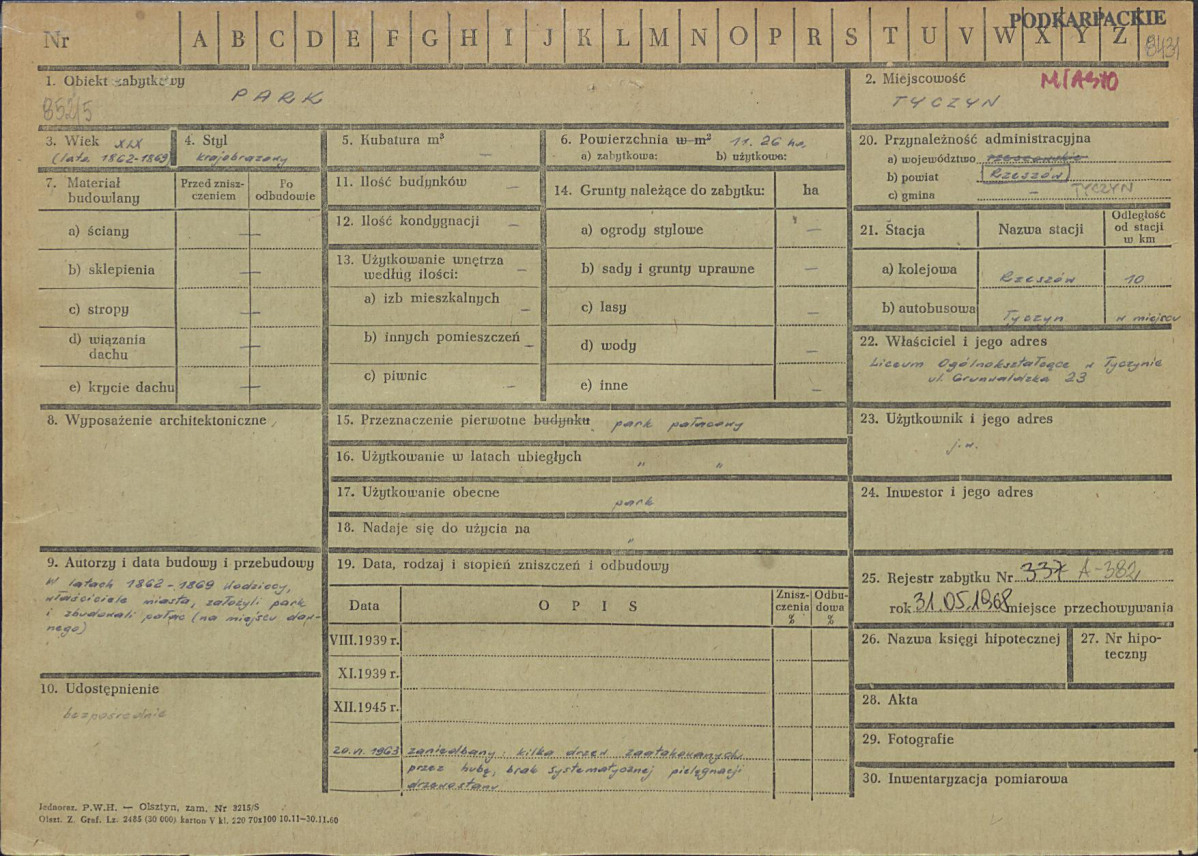 PODKARPACKIE
Nr A B C D E F G H I J K L M N O P R S T U V W X Y Z
8431
1. Obiekt zabytkowy
PARK
8525
2. Miejscowość MIASTO
TYCZYN
3. Wiek XIX
(lata 1862-1869)
4. Styl
krajobrazowy
5. Kubatura m³ —
6. Powierzchnia w m² 11.26 ha
a) zabytkowa: b) użytkowa:
7. Materiał budowlany
Przed zniszczeniem
Po odbudowie
a) ściany —
b) sklepienia —
c) stropy —
d) wiązania dachu
e) krycie dachu —
8. Wyposażenie architektoniczne
9. Autorzy i data budowy i przebudowy
W latach 1862-1869 Wodziccy,
właściciele miasta, założyli park
i zbudowali pałac (na miejscu daw-
nego)
10. Udostępnienie
bezpośrednie
11. Ilość budynków —
12. Ilość kondygnacji —
13. Użytkowanie wnętrza
według ilości:
a) izb mieszkalnych —
b) innych pomieszczeń —
c) piwnic —
14. Grunty należące do zabytku: ha
a) ogrody stylowe —
b) sady i grunty uprawne —
c) lasy —
d) wody —
e) inne —
15. Przeznaczenie pierwotne budynku park pałacowy
16. Użytkowanie w latach ubiegłych " "
17. Użytkowanie obecne park
18. Nadaje się do użycia na "
19. Data, rodzaj i stopień zniszczeń i odbudowy
Data
OPIS
Zniszczenia %
Odbudowa %
VIII.1939 r.
XI.1939 r.
XII.1945 r.
1963 zaniedbany; kilka drzew zaatakowanych
przez hubę, brak systematycznej pielęgnacji
drzewostanu
20. Przynależność administracyjna
a) województwo rzeszowskie
b) powiat Rzeszów
c) gmina — TYCZYN
21. Stacja
Nazwa stacji
Odległość od stacji w km
a) kolejowa Rzeszów 10
b) autobusowa Tyczyn w miejscu
22. Właściciel i jego adres
Liceum Ogólnokształcące w Tyczynie
ul. Grunwaldzka 23
23. Użytkownik i jego adres
j.w.
24. Inwestor i jego adres
25. Rejestr zabytku Nr 337 A-382
rok 31.05.1968 miejsce przechowywania
26. Nazwa księgi hipotecznej
27. Nr hipo-
teczny
28. Akta
29. Fotografie
30. Inwentaryzacja pomiarowa
Jednoraz. P.W.H. — Olsztyn, zam. Nr 3215/S
Olszt. Z. Graf. Lz. 2485 (30 000) karton V kl. 220 70x100 10.11—30.11.60